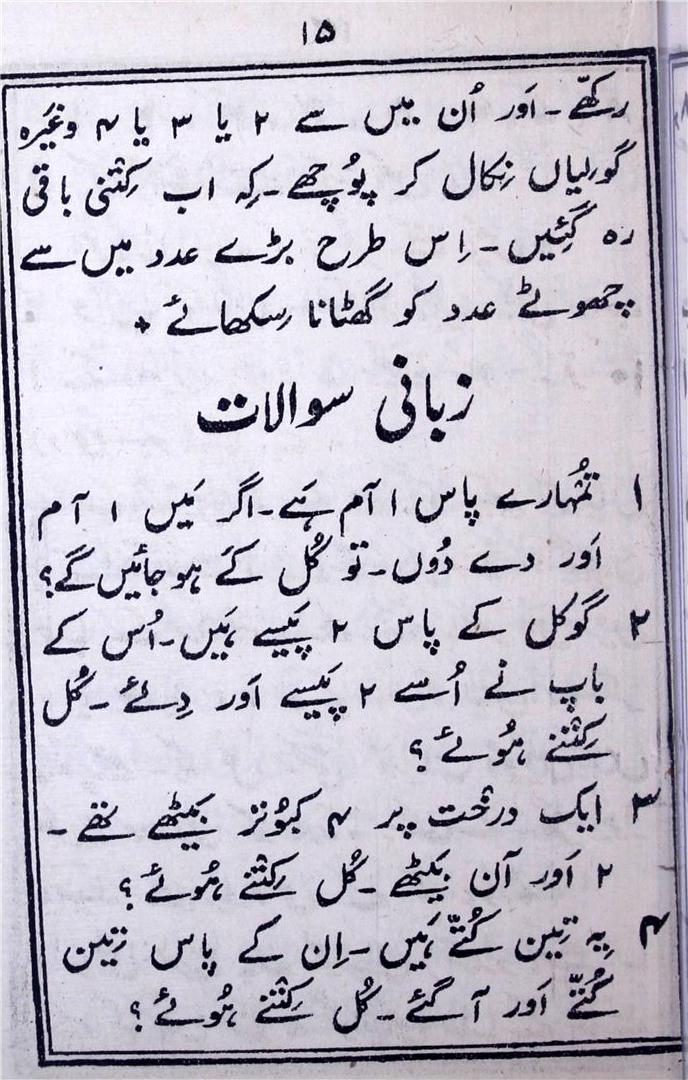 ۱۵
رکھّے ۔ اَور اُن میں سے ۲ یا ۳ یا ۴ وغَیرہ
گولِیاں نِکال کر پُوچھے ۔ کِہ اب کِتنی باقی
رہ گَئِیں ۔ اِس طرح بڑے عدد میں سے
چھوٹے عدد کو گھٹانا سِکھائے +
زبانی سوالات
۱ تُمہارے پاس ۱ آم ہَے ۔ اگر مَیں ۱ آم
اَور دے دُوں ۔ تو کُل کَے ہو جائیں گے؟
۲ گوکل کے پاس ۲ پَیسے ہَیں ۔ اُس کے
باپ نے اُسے ۲ پَیسے اَور دِئے ۔ کُل
کِتنے ہُوئے ؟
۳ ایک درخت پر ۴ کبُوتر بَیٹھے تھے ۔
۲ اَور آن بَیٹھے ۔ کُل کِتنے ہُوئے ؟
۴ یِہ تِین کُتّے ہَیں ۔ اِن کے پاس تِین
کُتّے اَور آ گئے ۔ کُل کِتنے ہُوئے ؟